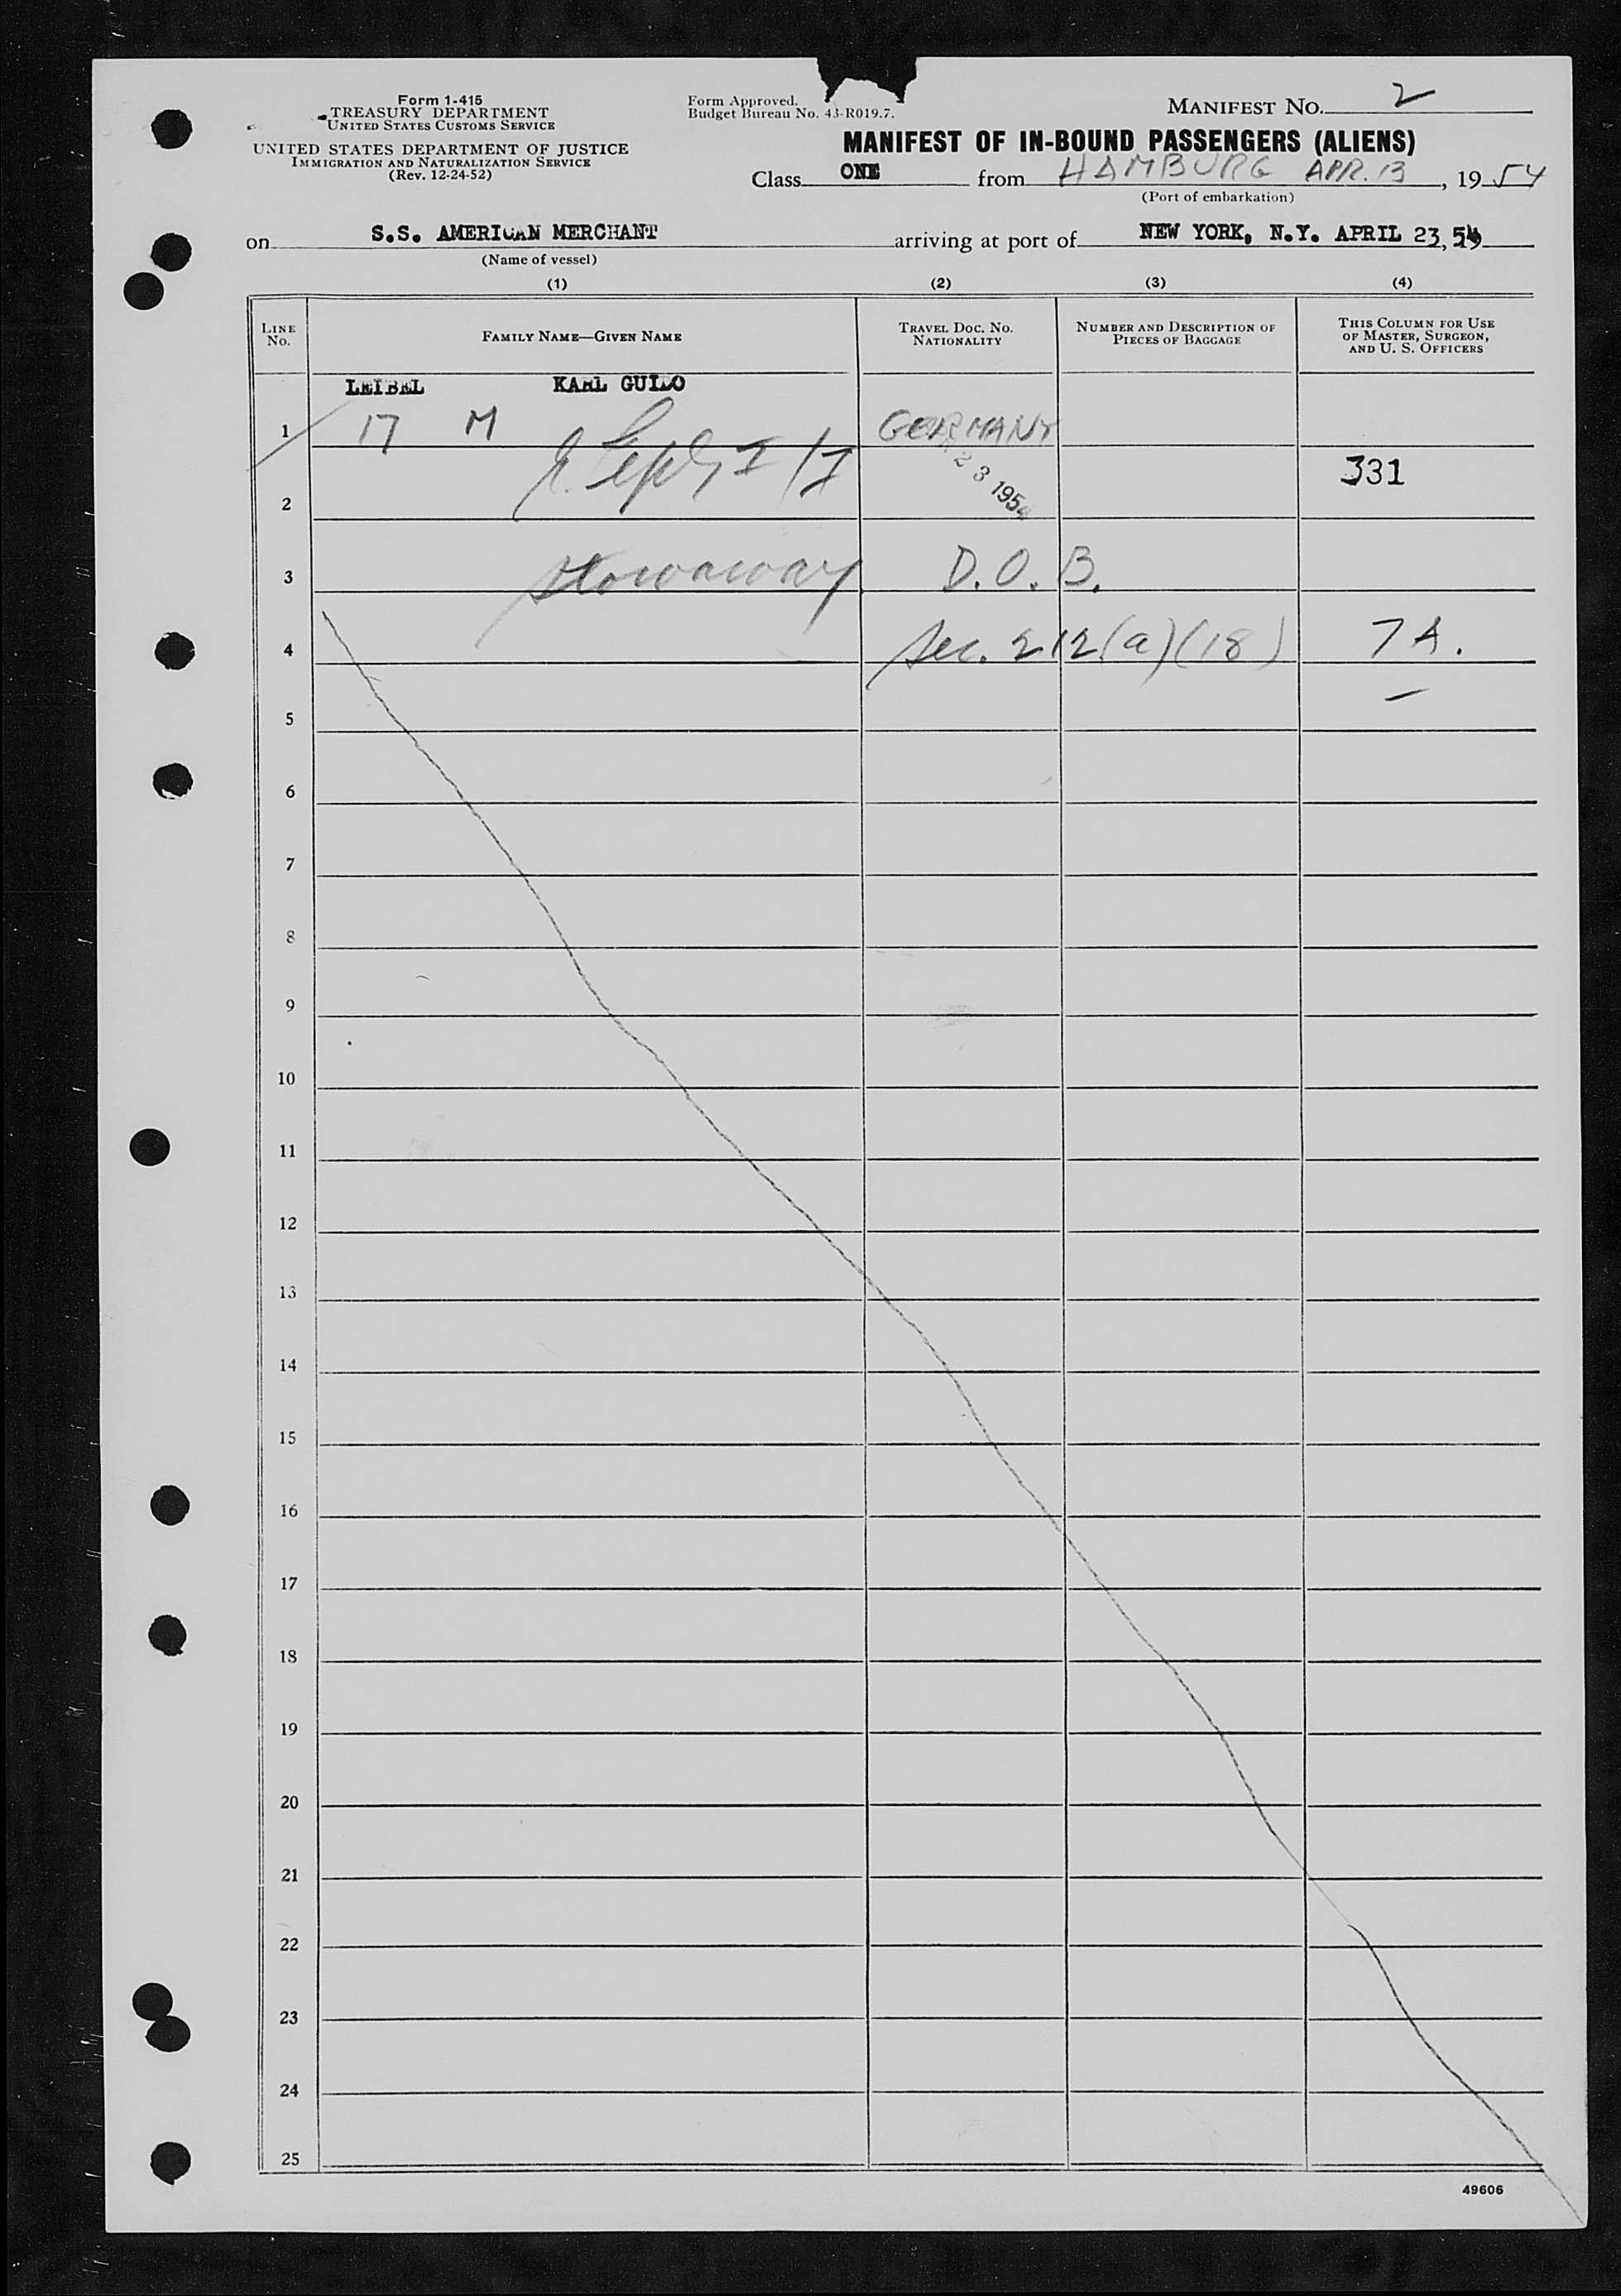 Form 1-415
TREASURY DEPARTMENT
UNITED STATES CUSTOMS SERVICE
UNITED STATES DEPARTMENT OF JUSTICE
IMMIGRATION AND NATURALIZATION SERVICE
(Rev. 12-24-52)
Form Approved.
Budget Bureau No. 43-R019.7.
MANIFEST No. 2
MANIFEST OF IN-BOUND PASSENGERS (ALIENS)
Class ONE from HAMBURG APR. 13, 1954
(Port of embarkation)
on S.S. AMERICAN MERCHANT arriving at port of NEW YORK, N.Y. APRIL 23, 54
(Name of vessel)
(1) (2) (3) (4)
LINE No. FAMILY NAME—GIVEN NAME TRAVEL DOC. NO. NATIONALITY NUMBER AND DESCRIPTION OF PIECES OF BAGGAGE THIS COLUMN FOR USE OF MASTER, SURGEON, AND U. S. OFFICERS
LEIBEL KARL GUIDO
1 17 M GERMANY
23 1954 331
2
3 Stowaway D.O.B.
4 Sec. 212(a)(18) 7A.
5
6
7
8
9
10
11
12
13
14
15
16
17
18
19
20
21
22
23
24
25
49606